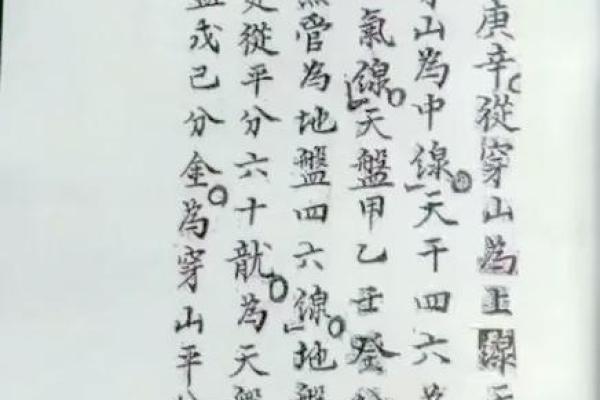 庚辛。從穿山為上線天
山為中線」。天干四六為
氣線」。天盤甲乙壬癸
營為地盤四六線」。地盤
從平分六十龍。為天盤
盤戊己分金。為穿山平分